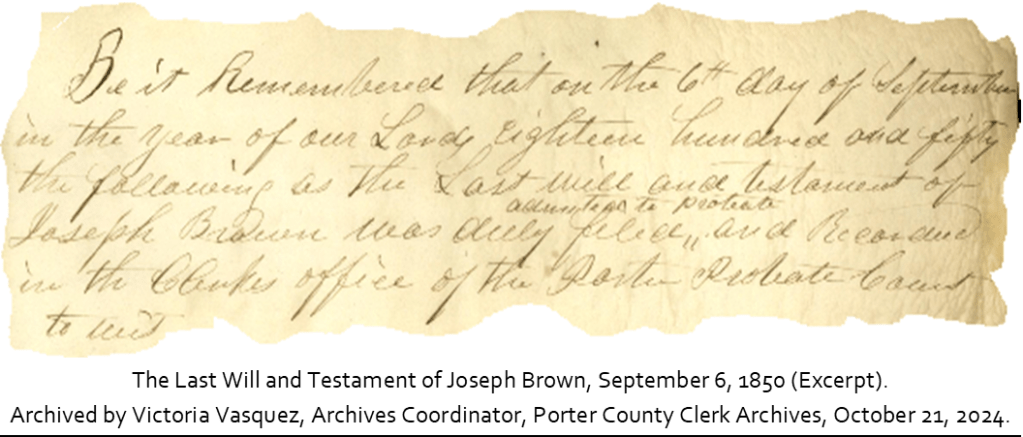 Be it Remembered that on the 6th day of September
in the year of our Lord, Eighteen hundred and fifty
the following as the Last will and testament of
admitted to probate
Joseph Brown was duly filed,, and Recorded
in th Clerks office of the Porter Probate Court
to wit
The Last Will and Testament of Joseph Brown, September 6, 1850 (Excerpt).
Archived by Victoria Vasquez, Archives Coordinator, Porter County Clerk Archives, October 21, 2024.